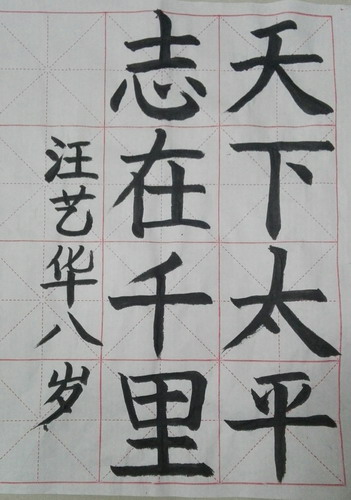 天下太平
志在千里
汪艺华八岁